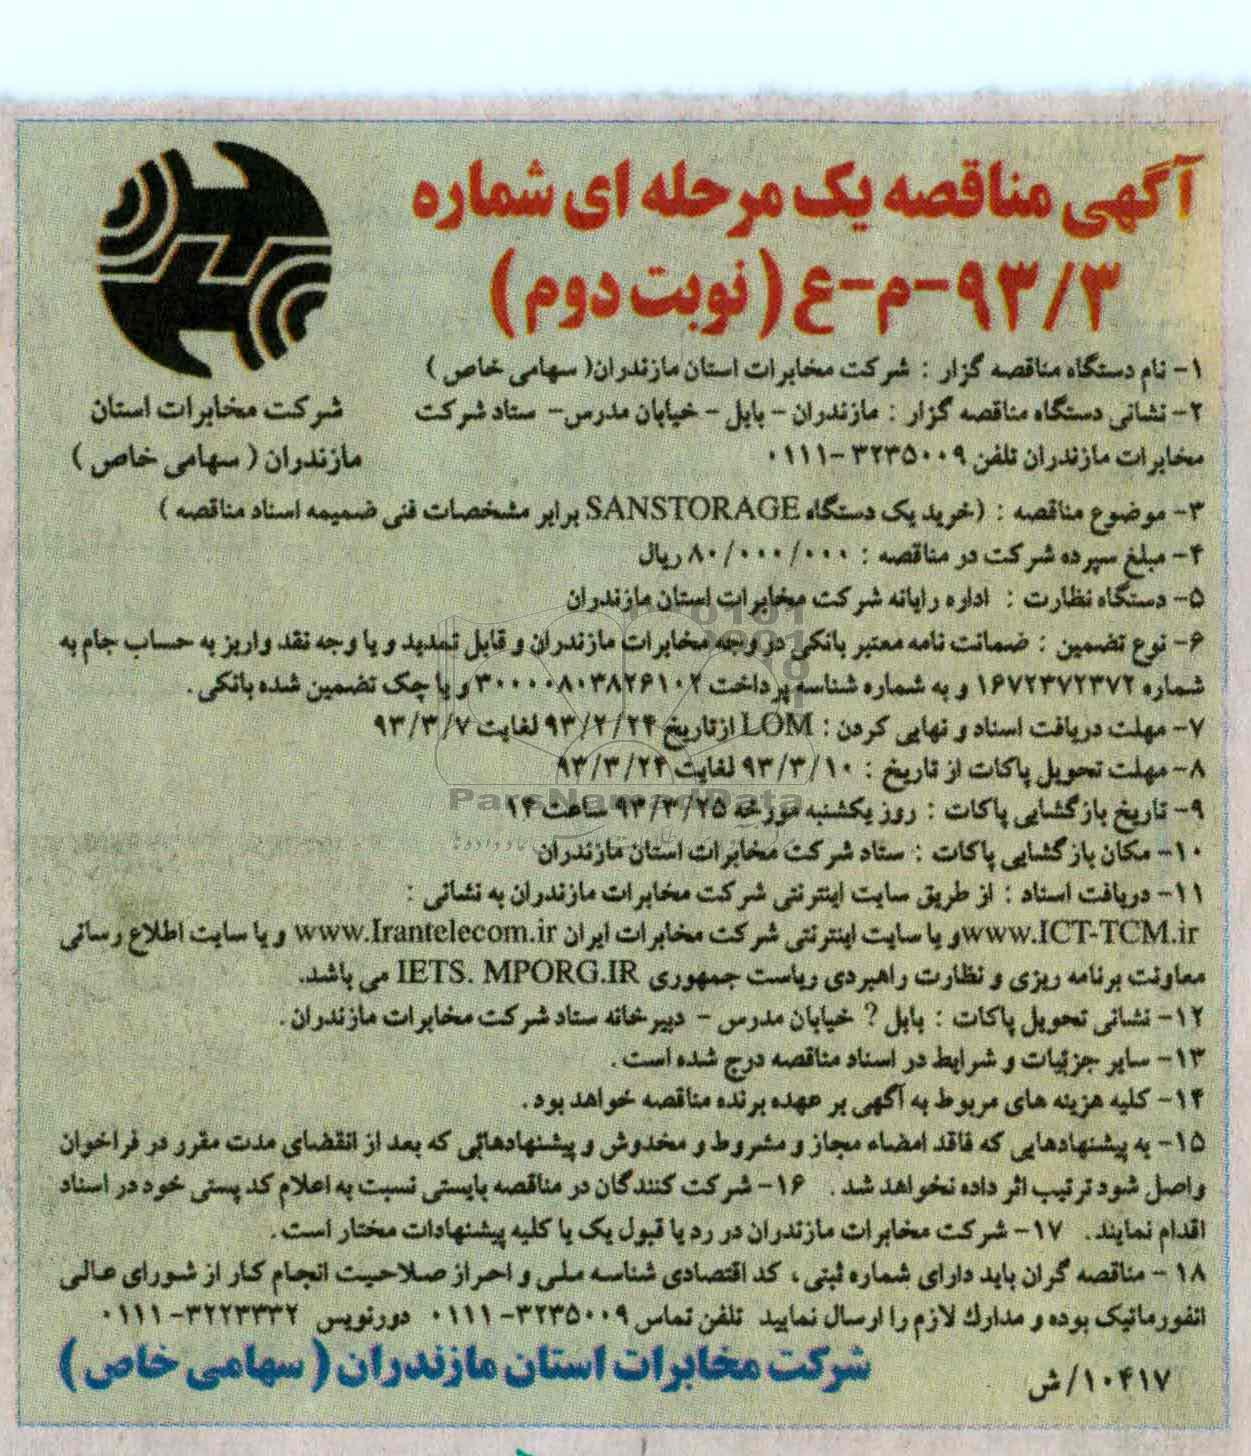 آگهی مناقصه یک مرحله ای شماره
۹۳/۳-م-ع (نوبت دوم)
شرکت مخابرات استان
مازندران (سهامی خاص)
۱- نام دستگاه مناقصه گزار : شرکت مخابرات استان مازندران( سهامی خاص )
۲- نشانی دستگاه مناقصه گزار : مازندران - بابل - خیابان مدرس- ستاد شرکت
مخابرات مازندران تلفن ۳۲۳۵۰۰۹-۰۱۱۱
۳- موضوع مناقصه : (خرید یک دستگاه SANSTORAGE برابر مشخصات فنی ضمیمه اسناد مناقصه )
۴- مبلغ سپرده شرکت در مناقصه : ۸۰/۰۰۰/۰۰۰ ریال
۵- دستگاه نظارت : اداره رایانه شرکت مخابرات استان مازندران
۶- نوع تضمین : ضمانت نامه معتبر بانکی در وجه مخابرات مازندران و قابل تمدید و یا وجه نقد واریز به حساب جام به
شماره ۱۶۷۲۳۷۲۳۷۲ و به شماره شناسه پرداخت ۳۰۰۰۰۸۰۳۸۲۶۱۰۲ و یا چک تضمین شده بانکی.
۷- مهلت دریافت اسناد و نهایی کردن : LOM ازتاریخ ۹۳/۲/۲۴ لغایت ۹۳/۳/۷
۸- مهلت تحویل پاکات از تاریخ : ۹۳/۳/۱۰ لغایت ۹۳/۳/۲۴
۹- تاریخ بازگشایی پاکات : روز یکشنبه مورخه ۹۳/۳/۲۵ ساعت ۱۴
۱۰- مکان بازگشایی پاکات : ستاد شرکت مخابرات استان مازندران
۱۱- دریافت اسناد : از طریق سایت اینترنتی شرکت مخابرات مازندران به نشانی :
www.ICT-TCM.ir و یا سایت اینترنتی شرکت مخابرات ایران www.Irantelecom.ir و یا سایت اطلاع رسانی
معاونت برنامه ریزی و نظارت راهبردی ریاست جمهوری IETS. MPORG.IR می باشد.
۱۲- نشانی تحویل پاکات : بابل ? خیابان مدرس - دبیرخانه ستاد شرکت مخابرات مازندران.
۱۳- سایر جزئیات و شرایط در اسناد مناقصه درج شده است.
۱۴- کلیه هزینه های مربوط به آگهی بر عهده برنده مناقصه خواهد بود.
۱۵- به پیشنهادهایی که فاقد امضاء مجاز و مشروط و مخدوش و پیشنهادهائی که بعد از انقضای مدت مقرر در فراخوان
واصل شود ترتیب اثر داده نخواهد شد. ۱۶- شرکت کنندگان در مناقصه بایستی نسبت به اعلام کد پستی خود در اسناد
اقدام نمایند. ۱۷- شرکت مخابرات مازندران در رد یا قبول یک یا کلیه پیشنهادات مختار است.
۱۸- مناقصه گران باید دارای شماره ثبتی، کد اقتصادی شناسه ملی و احراز صلاحیت انجام کار از شورای عالی
انفورماتیک بوده و مدارک لازم را ارسال نمایید تلفن تماس ۳۲۳۵۰۰۹-۰۱۱۱ دورنویس ۳۲۲۳۳۳۲-۰۱۱۱
شرکت مخابرات استان مازندران (سهامی خاص)
۱۰۴۱۷/ش
ParsNamadData